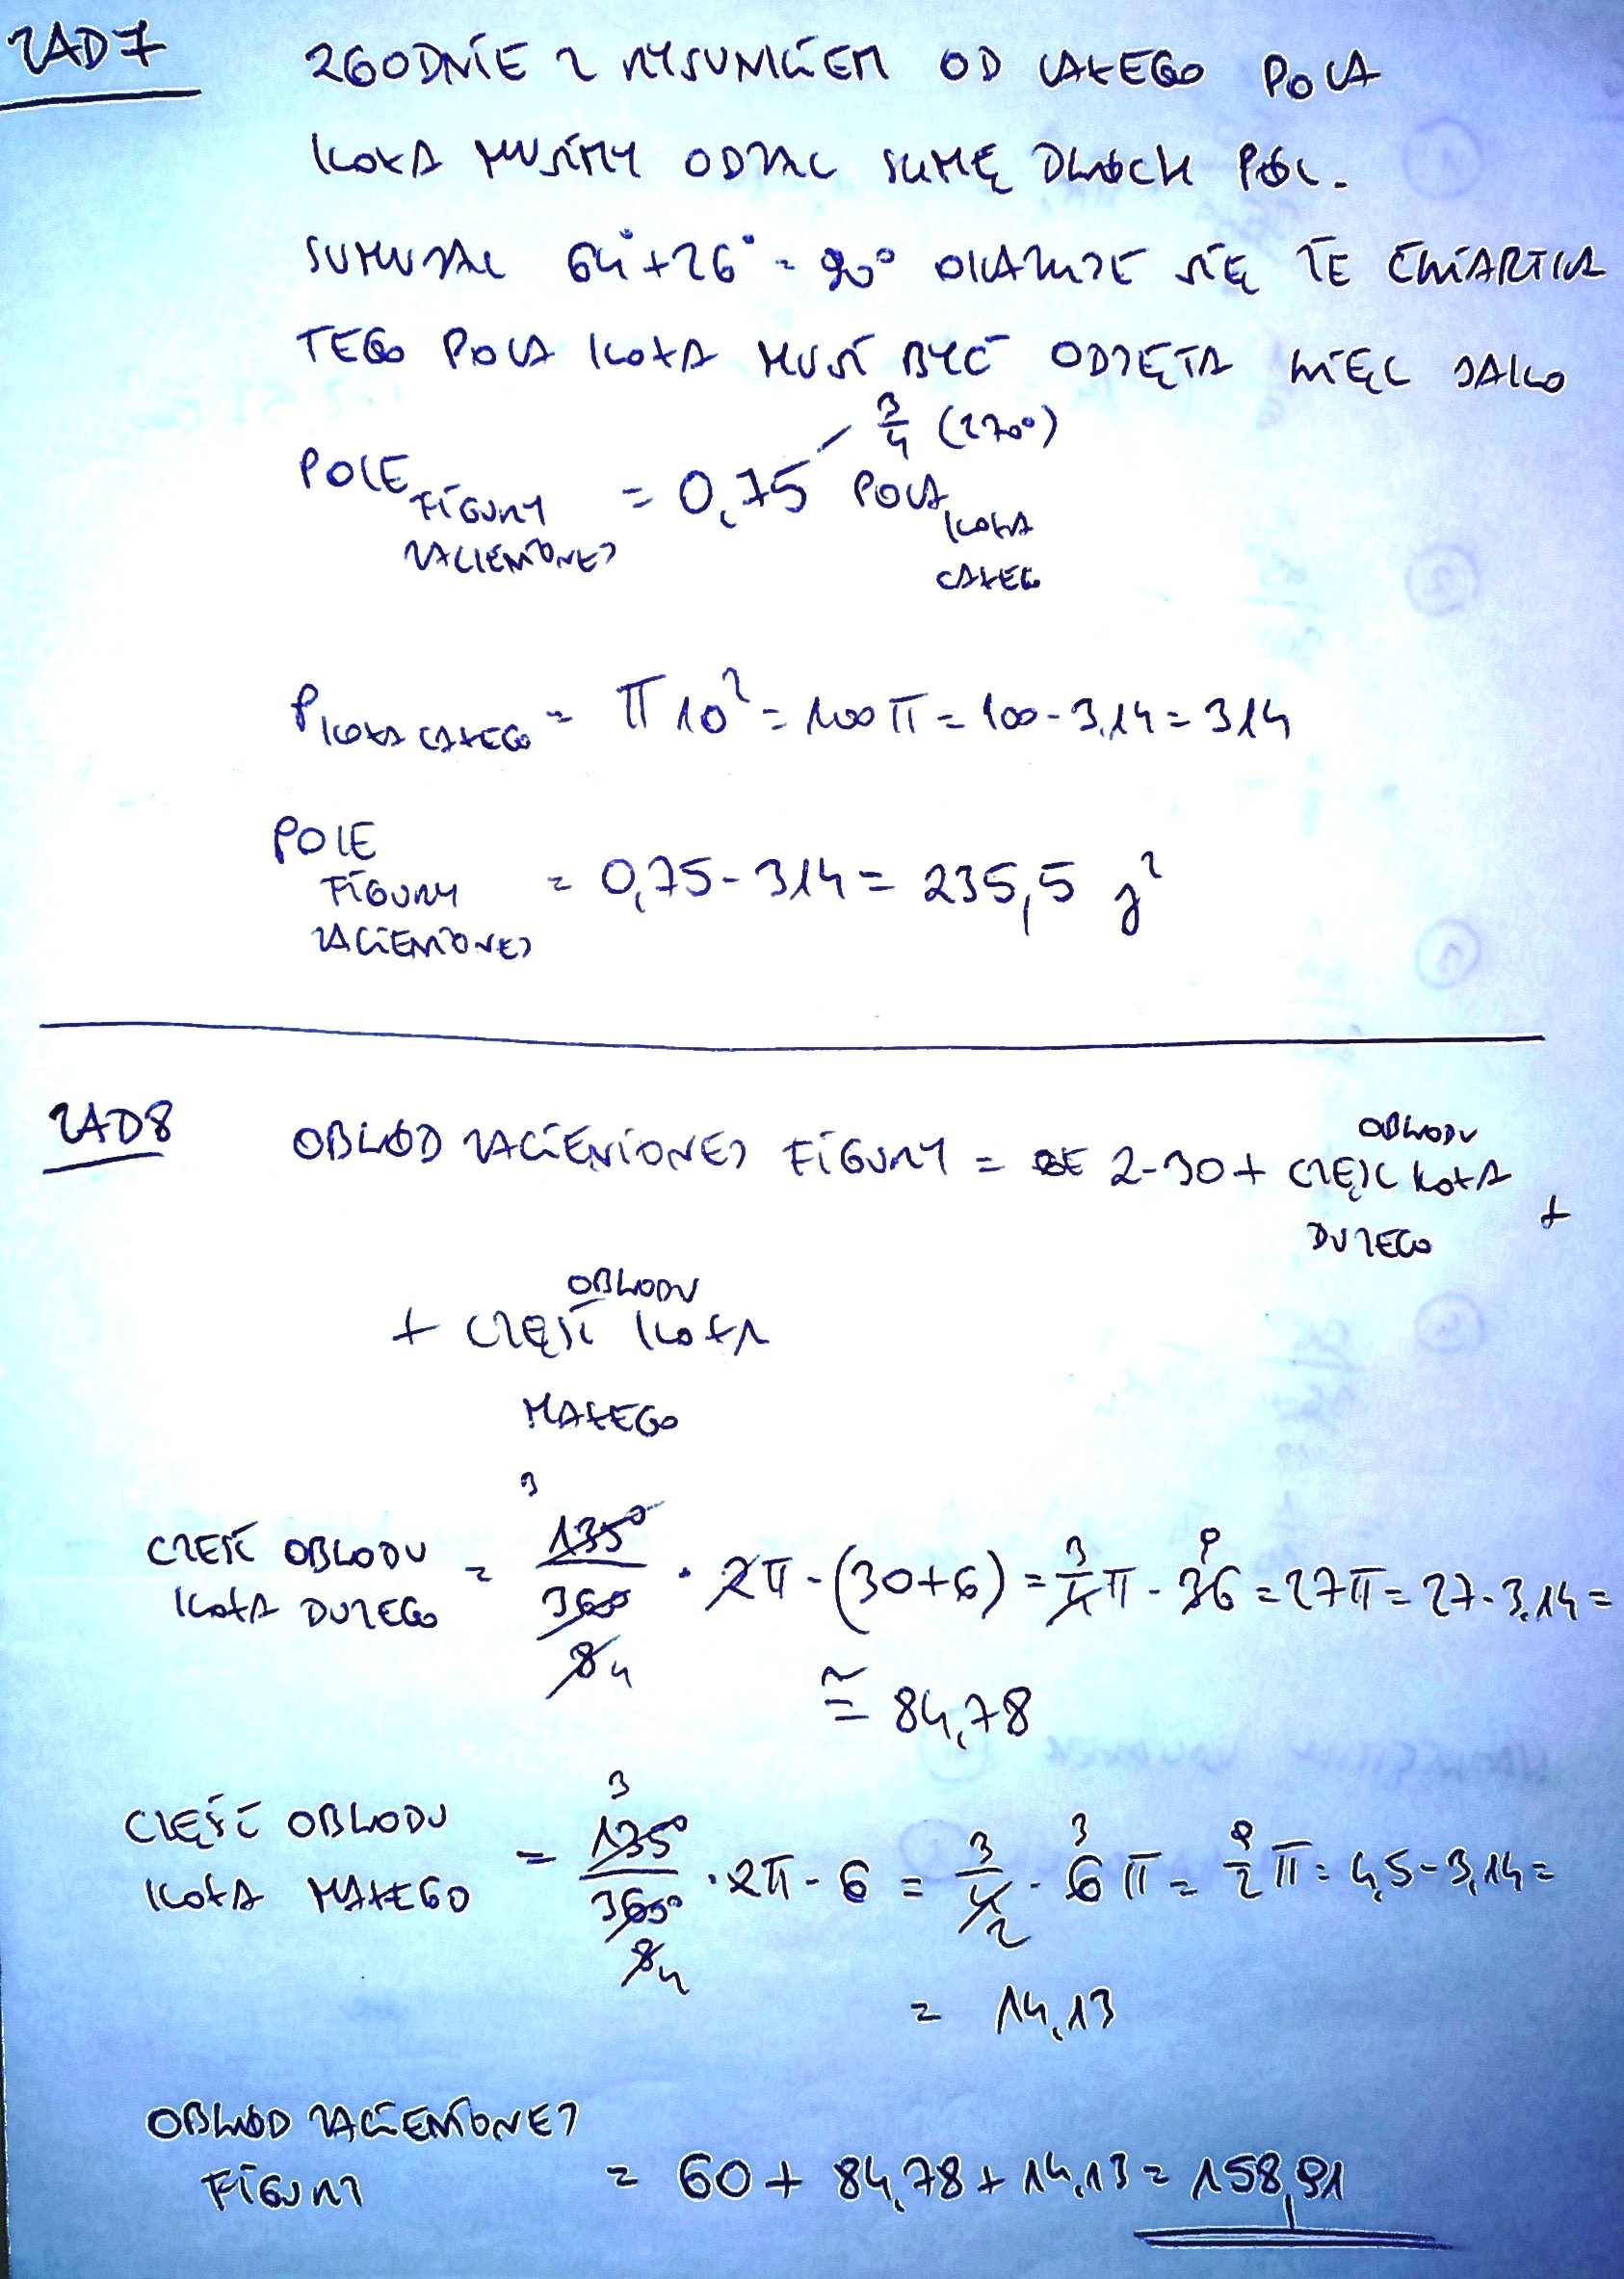 ZAD 7
ZGODNIE Z RYSUNKIEM OD CAŁEGO POLA
KOŁA MUSIMY ODJĄC SUMĘ DWÓCH PÓL.
SUMUJĄC 64°+26° = 90° OKAZUJE SIĘ ŻE ĆWIARTKA
TEGO POLA KOŁA MUSI BYĆ ODJĘTA WIĘC JAKO
3/4 (270°)
POLE FIGURY ZACIENIONEJ = 0,75 POLA KOŁA CAŁEG
P KOŁA CAŁEGO = π 10² = 100 π = 100 · 3,14 = 314
POLE FIGURY ZACIENIONEJ = 0,75 · 314 = 235,5 j²
ZAD 8
OBWÓD ZACIENIONEJ FIGURY = 2 · 30 + CZĘŚC OBWODU KOŁA DUZEGO +
+ CZĘŚĆ OBWODU KOŁA MAŁEGO
CZEŚĆ OBWODU KOŁA DUZEGO = 135°/360° · 2π · (30+6) = 3/4 π · 36 = 27π = 27 · 3,14 =
≅ 84,78
CZĘŚĆ OBWODU KOŁA MAŁEGO = 135°/360° · 2π · 6 = 3/4 · 6 π = 9/2 π = 4,5 · 3,14 =
= 14,13
OBWÓD ZACIENIONEJ FIGURY = 60 + 84,78 + 14,13 = 158,91